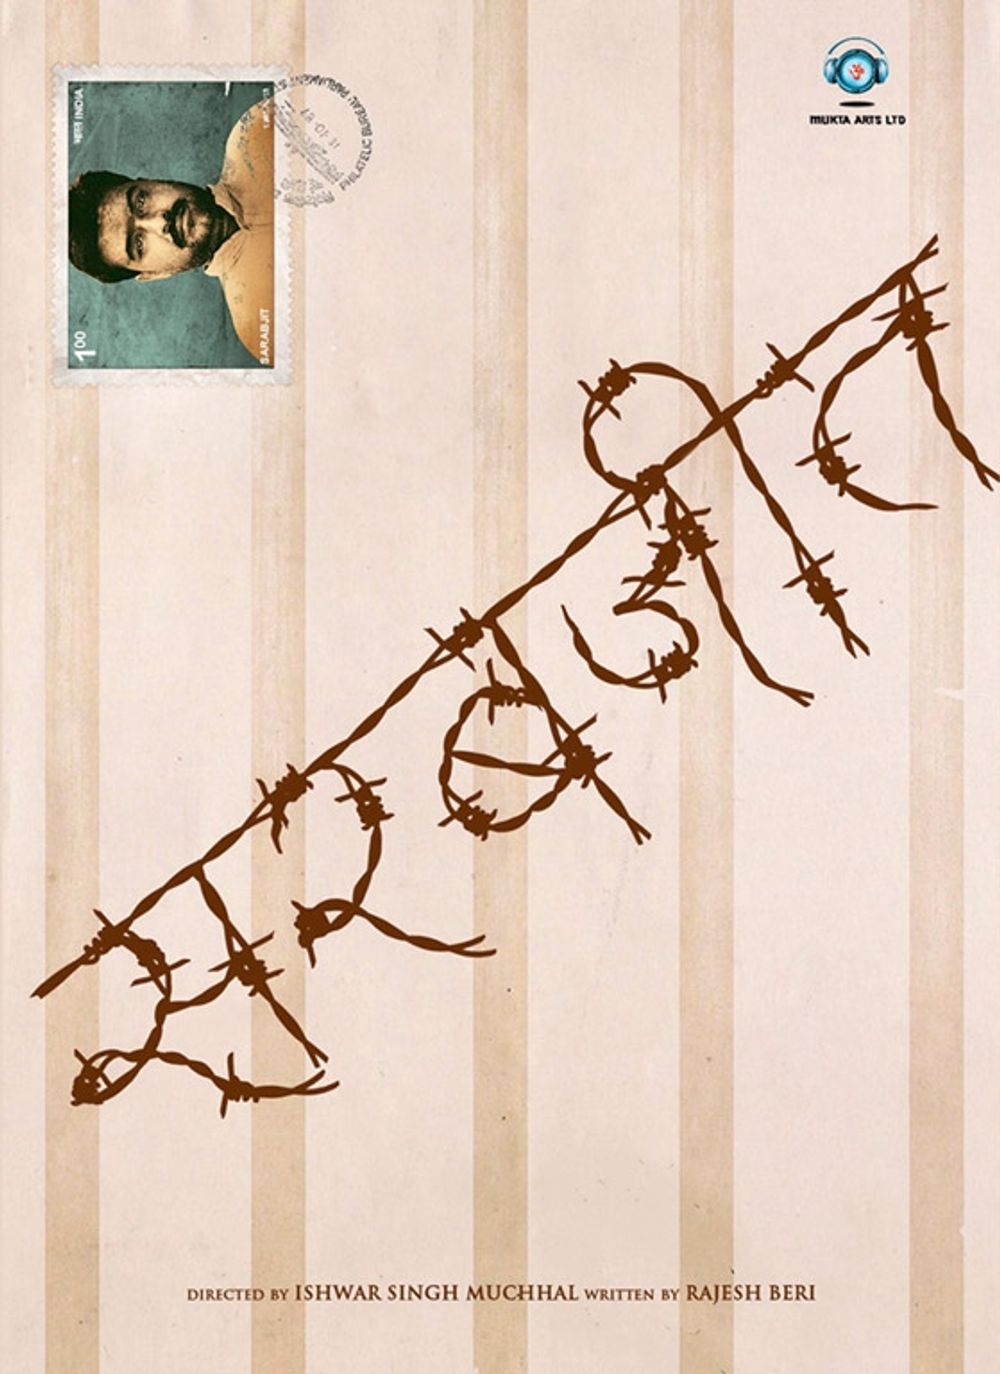 भारत INDIA
1 00
SARABJIT
PHILATELIC BUREAU
MUKTA ARTS LTD
सरबजीत
DIRECTED BY ISHWAR SINGH MUCHHAL WRITTEN BY RAJESH BERI